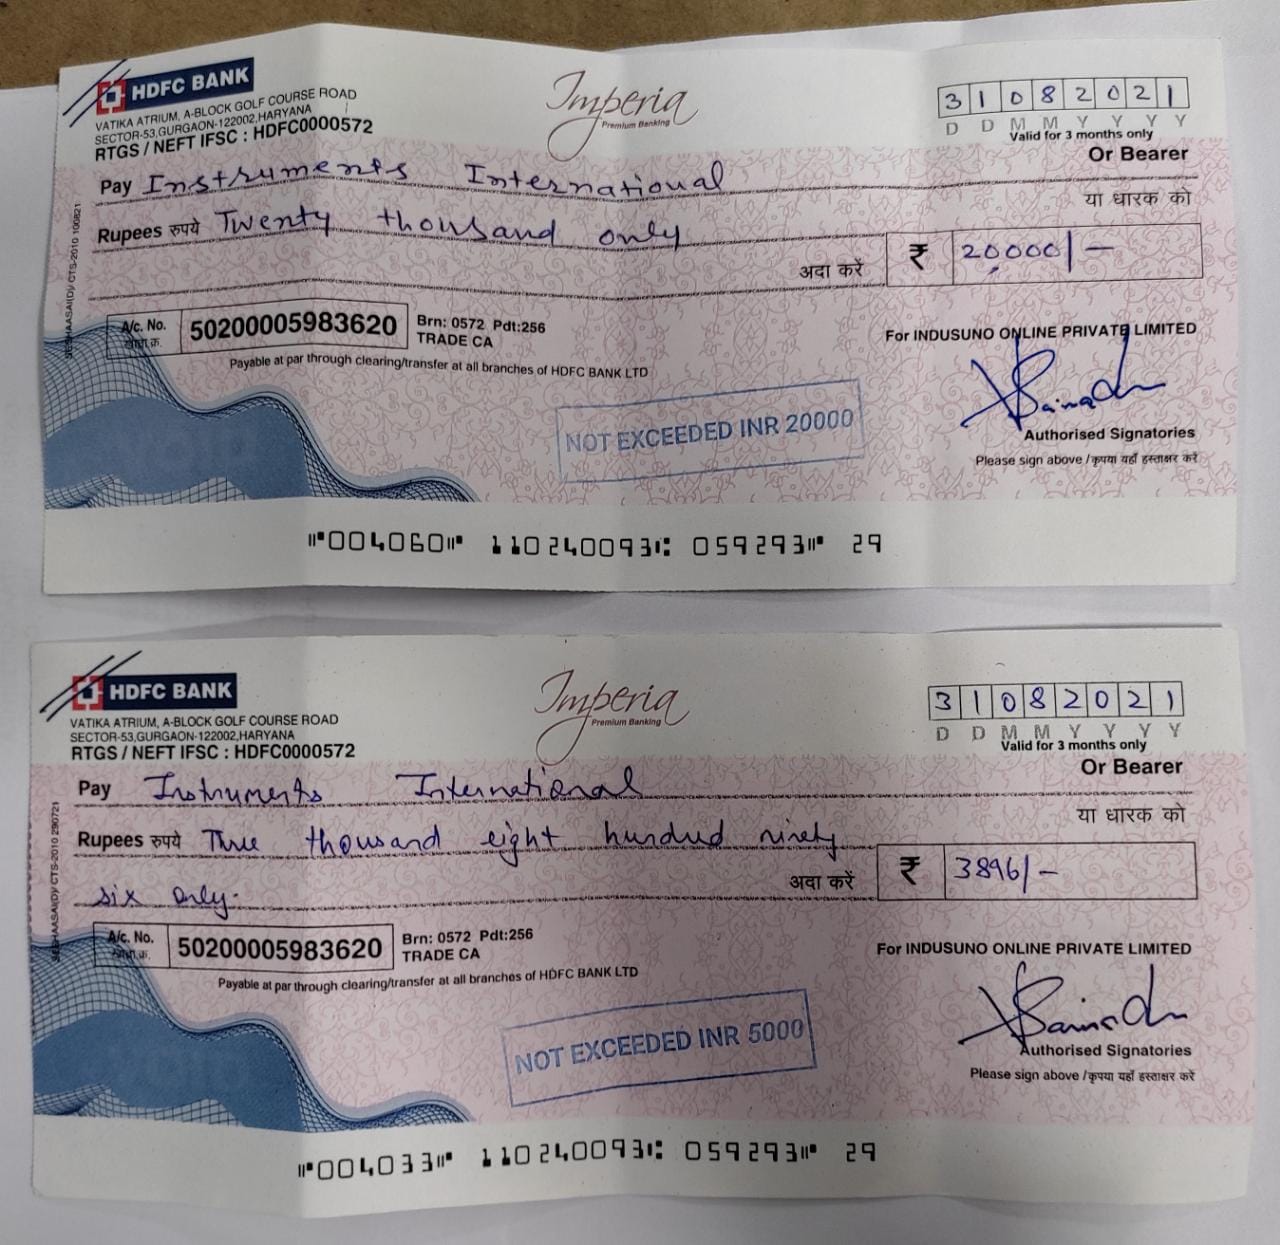 HDFC BANK
VATIKA ATRIUM, A-BLOCK GOLF COURSE ROAD
SECTOR-53,GURGAON-122002,HARYANA
RTGS / NEFT IFSC : HDFC0000572
Imperia
Premium Banking
3 1 0 8 2 0 2 1
D D M M Y Y Y Y
Valid for 3 months only
Or Bearer
Pay Instruments International
या धारक को
Rupees रुपये Twenty thousand only
अदा करें ₹ 20,000/-
A/c. No. 50200005983620 Brn: 0572 Pdt:256
TRADE CA
Payable at par through clearing/transfer at all branches of HDFC BANK LTD
For INDUSUNO ONLINE PRIVATE LIMITED
NOT EXCEEDED INR 20000
Authorised Signatories
Please sign above / कृपया यहाँ हस्ताक्षर करें
CTS-2010 100821
⑈004060⑈ 110240093⑆ 059293⑈ 29
HDFC BANK
VATIKA ATRIUM, A-BLOCK GOLF COURSE ROAD
SECTOR-53,GURGAON-122002,HARYANA
RTGS / NEFT IFSC : HDFC0000572
Imperia
Premium Banking
3 1 0 8 2 0 2 1
D D M M Y Y Y Y
Valid for 3 months only
Or Bearer
Pay Instruments International
या धारक को
Rupees रुपये Three thousand eight hundred ninety
six only.
अदा करें ₹ 3896/-
A/c. No. 50200005983620 Brn: 0572 Pdt:256
TRADE CA
Payable at par through clearing/transfer at all branches of HDFC BANK LTD
For INDUSUNO ONLINE PRIVATE LIMITED
NOT EXCEEDED INR 5000
Authorised Signatories
Please sign above / कृपया यहाँ हस्ताक्षर करें
CTS-2010 290721
⑈004033⑈ 110240093⑆ 059293⑈ 29